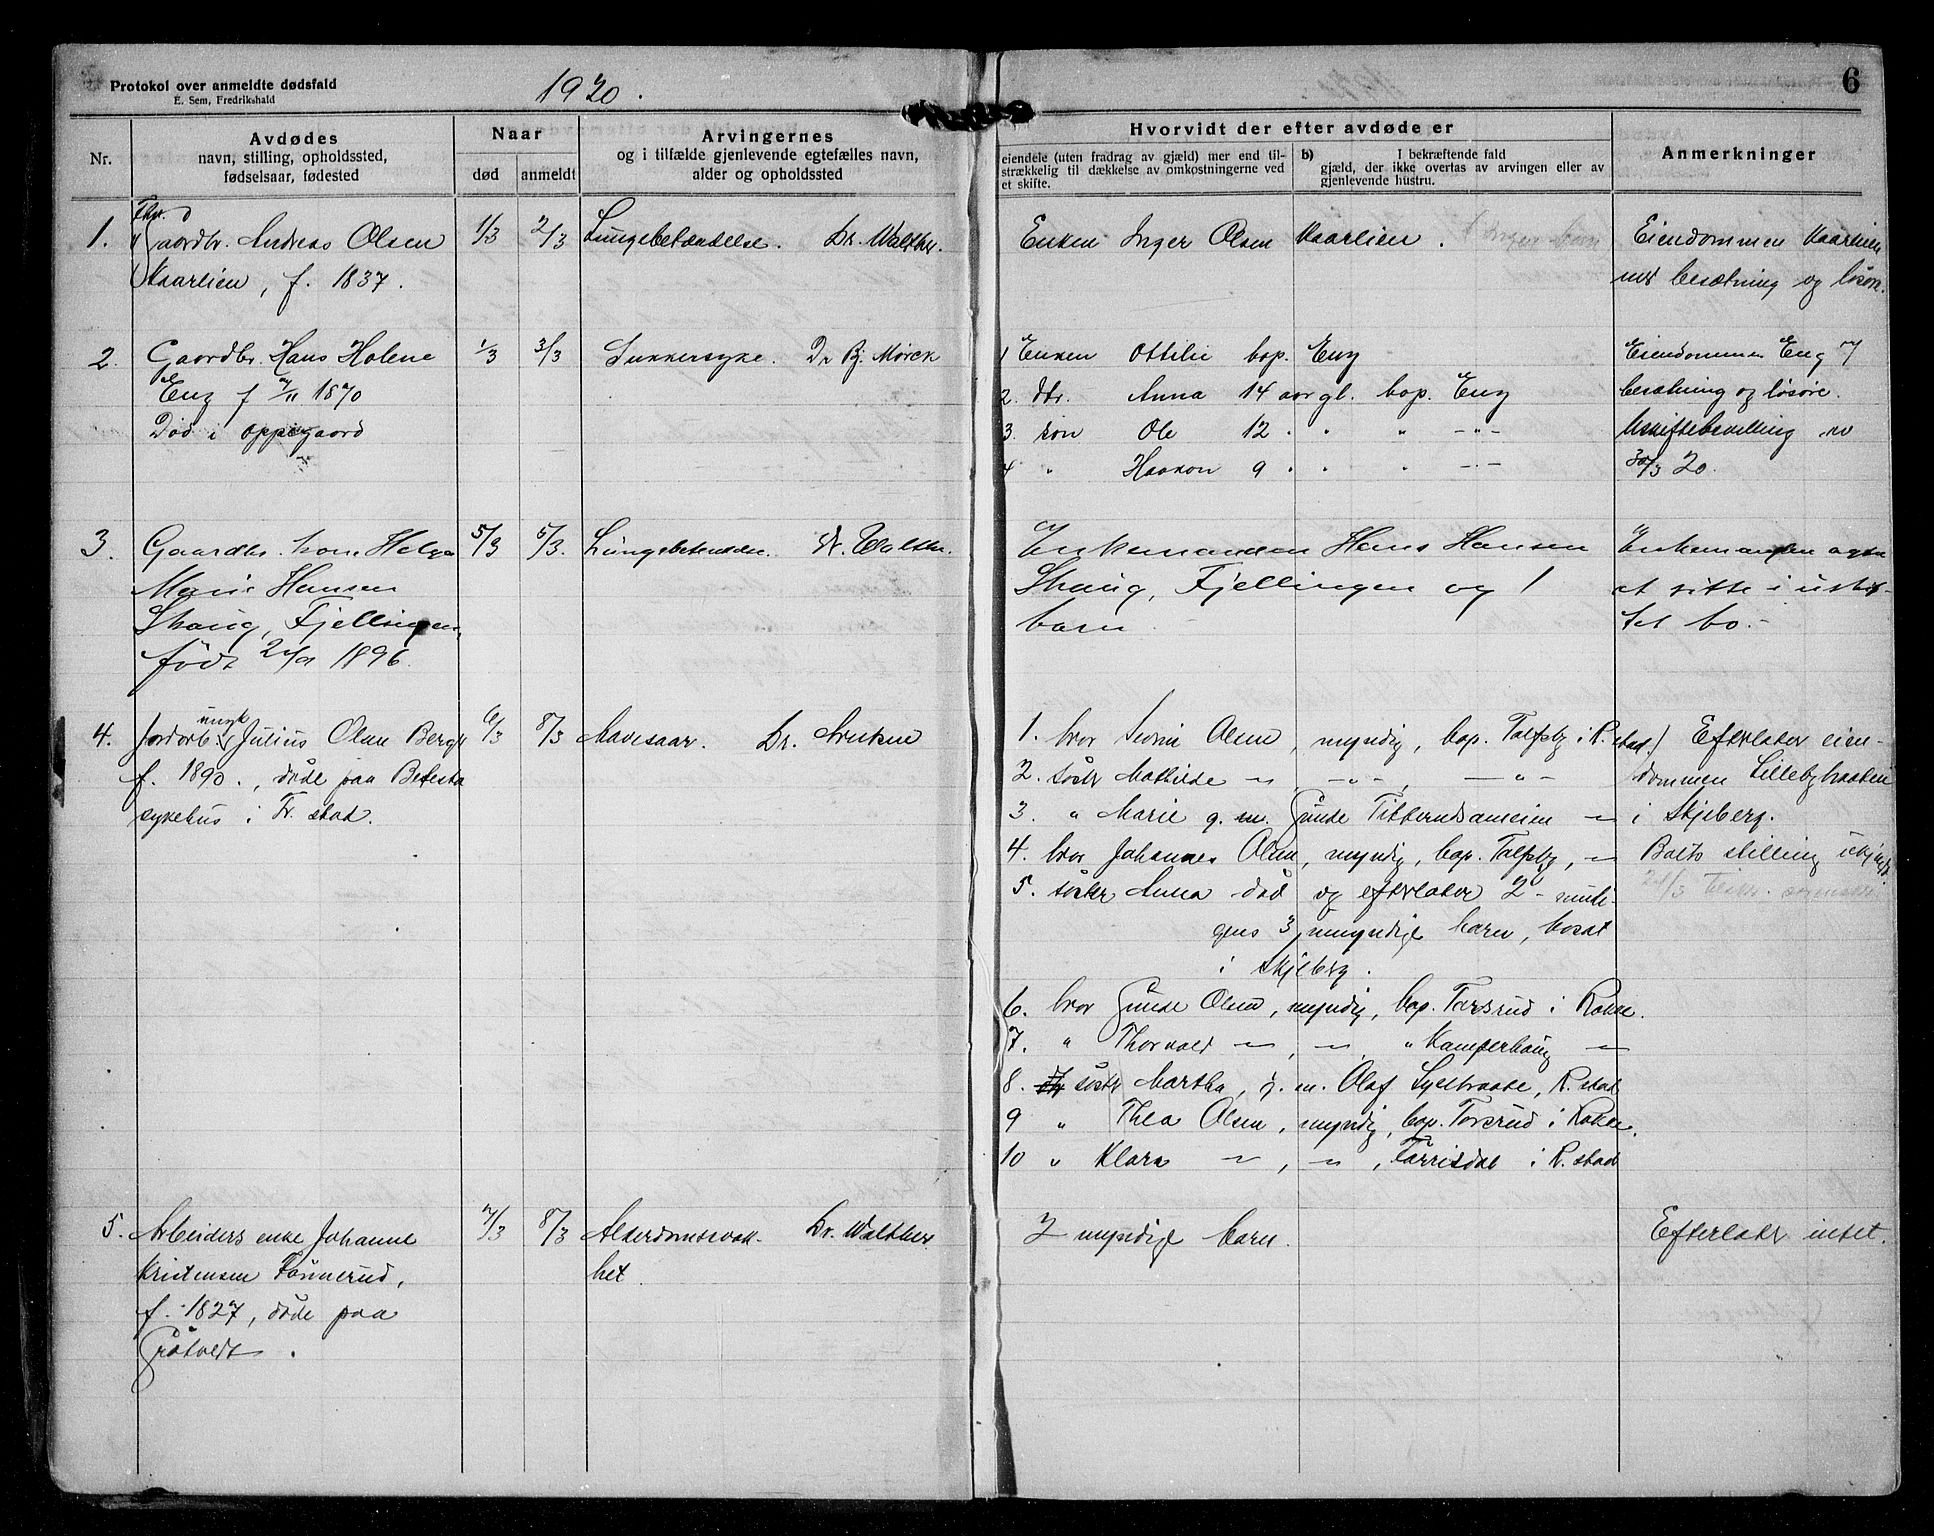 Protokol over anmeldte dødsfald
E. Sem, Fredrikshald
1920.
6
Nr.
Avdødes
navn, stilling, opholdssted,
fødselsaar, fødested
Naar
død
anmeldt
Arvingernes
og i tilfælde gjenlevende egtefælles navn,
alder og opholdssted
Hvorvidt der efter avdøde er
eiendele (uten fradrag av gjæld) mer end til-
strækkelig til dækkelse av omkostningerne ved
et skifte.
b) I bekræftende fald
gjæld, der ikke overtas av arvingen eller av
gjenlevende hustru.
Anmerkninger
1. Gaardbr. Andreas Olsen
Kaarlien, f. 1837.
1/3 2/3 Lungebetændelse. Dr. Walther.
Enken Inger Olsen Kaarlien.
Eiendommen Kaarlien
med besætning og løsøre.
2. Gaardbr. Hans Holene
Eng f 7/11 1870
Død i Oppegaard
1/3 3/3 Sukkersyke. Dr Bj. Mørck
1 Enken Ottilie bop. Eng
2. dtr. Anna 14 aar gl. bop. Eng
3. søn Ole 12 " " " -"-
4 " Haakon 9 " " " -"-
Eiendommen Eng
besætning og løsøre.
Uskiftebevilling av
30/3 20.
3. Gaardbr. kone Helga
Marie Hansen
Skaug, Fjellingen,
født 1896.
5/3 6/3. Lungebetændelse. Dr. Walther.
Enkemanden Hans Hansen
Skaug, Fjellingen og 1
barn.
Enkemanden agter
at sitte i uskif-
tet bo.-
4. Jordarb. ungk. Julius Olsen Berg
f. 1890., døde paa Betesta
sykehus i Fr. stad.
6/3 8/3 Mavesaar. Dr.
1. bror Olsen, myndig, bop. Talfsby i R. stad.
2. søster Mathilde -"- -"-, -"-
3. " Marie g. m. Gunde -"-
4. bror Johannes Olsen, myndig, bop. Talfsby, -"-
5. søster Anna død og efterlater 2 - muli-
gens 3 umyndige barn, bosat
i Skjeberg.
6. bror Gunde Olsen, myndig, bop. Torsrud i Rokke.
7. " Thorvald -"-, -"- " Kamperhaug -"-
8. søster Martha, g. m. Olaf, R. stad
9 " Thea Olsen, myndig, bop. Torsrud i Rokke.
10 " Klara -"-, -"-, i R. stad
Efterlater eien-
dommen Lillebybraaten
i Skjeberg.
Boets stilling ukjendt
5. Arbeiders enke Johanne
Kristensen Tønnerud,
f. 1827, døde paa
Grøtvedt.
7/3 8/3 Alderdomssvak-
het. Dr. Walther.
2 myndige barn.
Efterlater intet.